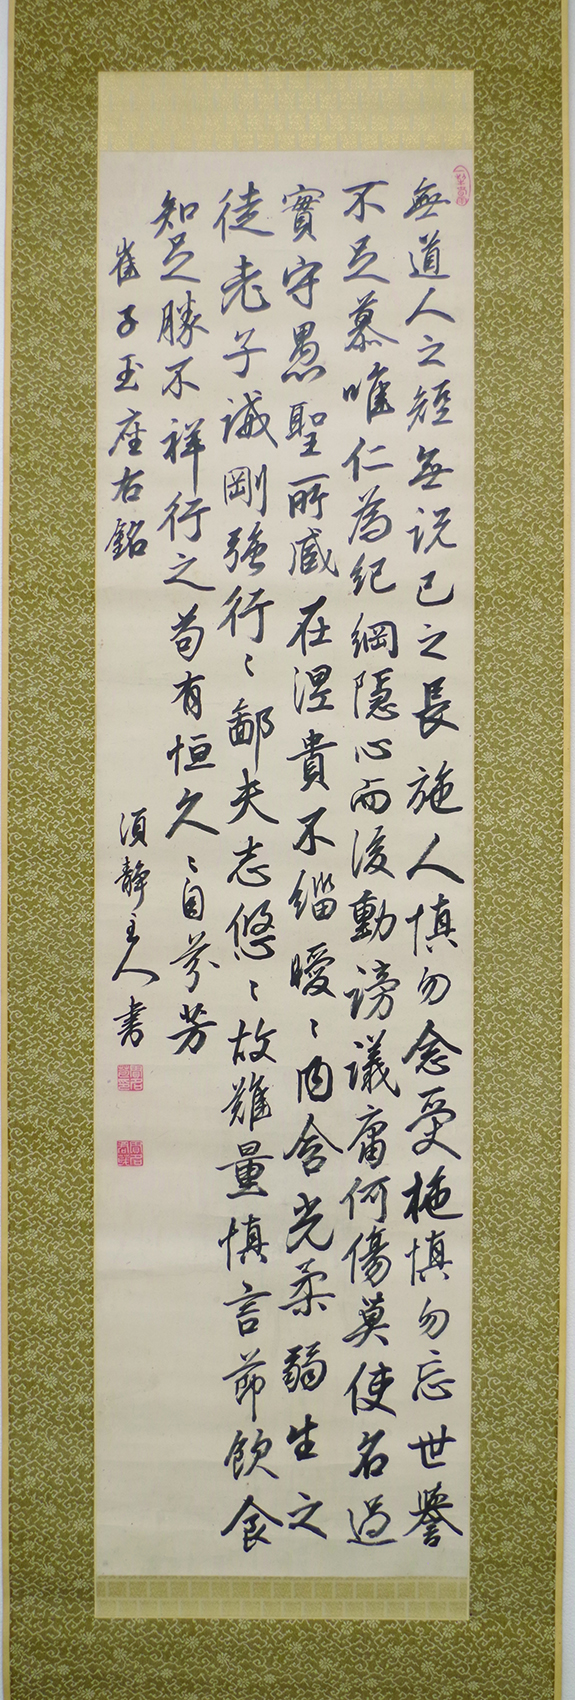 無道人之短無説己之長施人慎勿念受施慎勿忘世譽
不足慕唯仁為紀綱隠心而後動謗議庸何傷莫使名過
實守愚聖所臧在涅貴不緇曖〻内含光柔弱生之
徒老子誡剛強行〻鄙夫志悠〻故難量慎言節飲食
知足勝不祥行之苟有恒久〻自芬芳
崔子玉座右銘
須静主人書